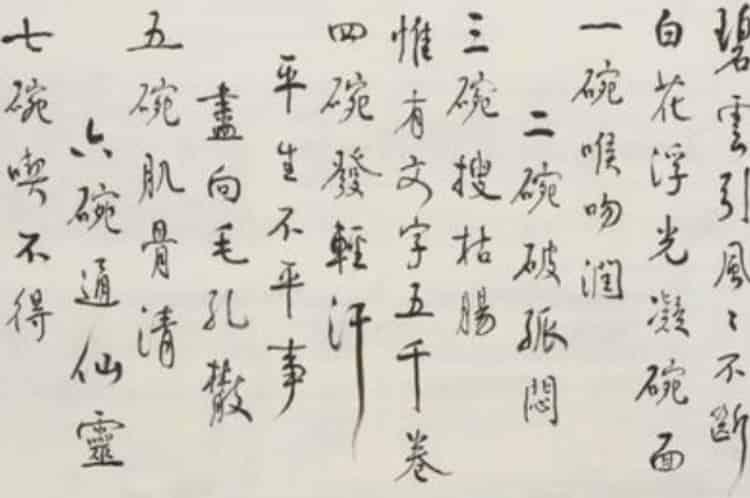 碧雲引風〻不斷
白花浮光凝碗面
一碗喉吻潤
二碗破孤悶
三碗搜枯腸
惟有文字五千卷
四碗發輕汗
平生不平事
盡向毛孔散
五碗肌骨清
六碗通仙靈
七碗喫不得